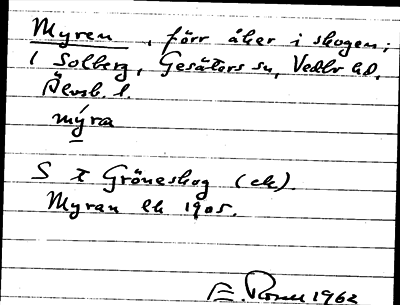 Myren, förr åker i skogen;
1 Solberg, Gesäters sn, Vedbo hd,
Älvsb. l.
mýra
S Gröneskog (ek).
Myran ek 1905.
1962